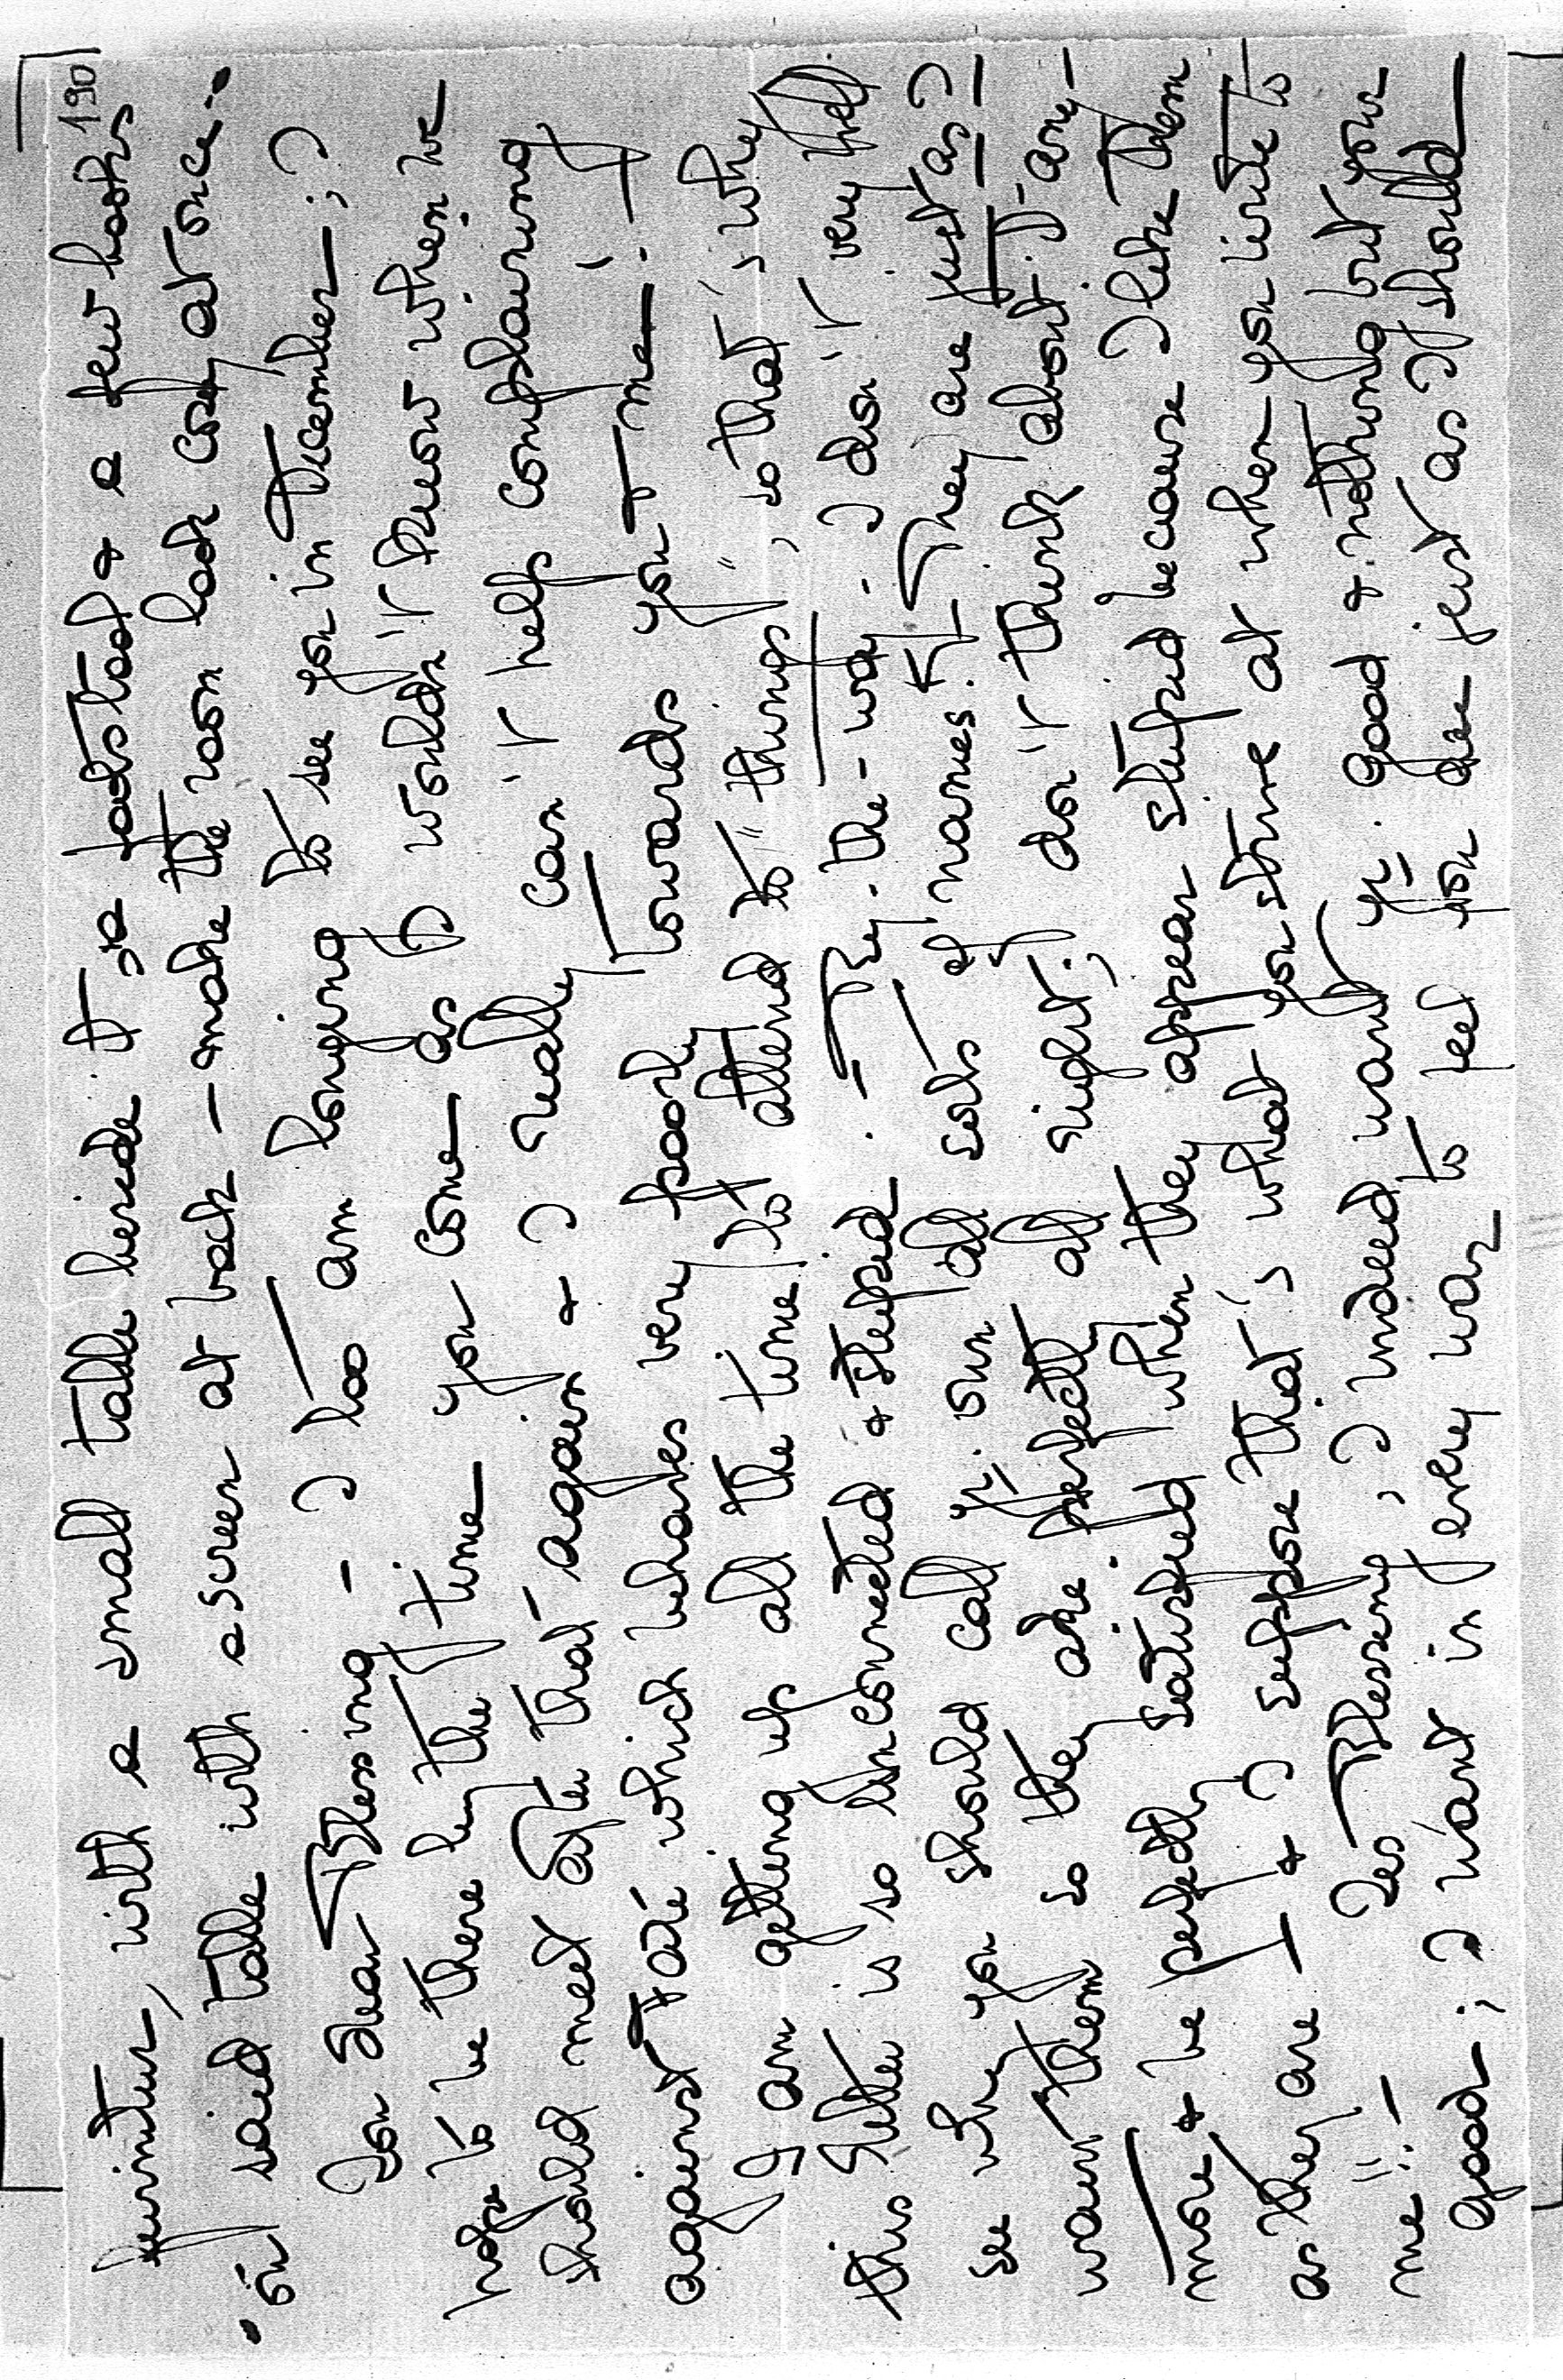 190
furniture, with a small table beside it, a footstool & a few books
on said table with a screen at back – make the room look cosy at once.
You dear Blessing – I too am longing to see you in December – ; I
hope to be there by the time you come – as I wouldn't know when we
should meet after that again & I really can't help complaining
against Fate which behaves very poorly towards you & me – ! –
I am getting up all the time to attend to "things", so that's why
this letter is so unconnected & stupid. – By-the-way: I don't very well
see why you should call yr. own all sorts of names. – They are just as I
want them so they are perfectly all right; don't think about it any-
more & be perfectly satisfied when they appear stupid because I like them
as they are & I suppose that's what you strive at when you write to
me!! – Yes Blessing, I indeed want yr. good & nothing but your
good; I want in every way to feel you are just as I should